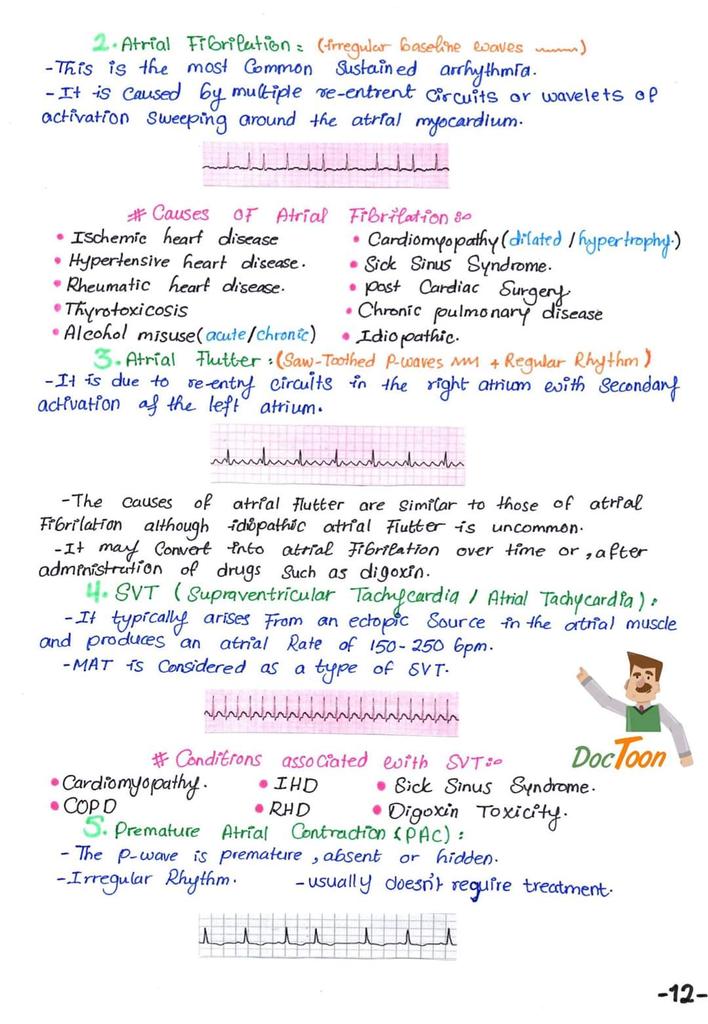 2. Atrial Fibrilation: (irregular baseline waves)
- This is the most Common Sustained arrhythmia.
- It is Caused by multiple re-entrent Circuits or wavelets of
activation Sweeping around the atrial myocardium.
# Causes OF Atrial Fibrilation:
• Ischemic heart disease
• Hypertensive heart disease.
• Rheumatic heart disease.
• Thyrotoxicosis
• Alcohol misuse (acute/chronic)
• Cardiomyopathy (dilated /hypertrophy.)
• Sick Sinus Syndrome.
• post Cardiac Surgery
• Chronic pulmonary disease
• Idiopathic.
3. Atrial Flutter: (Saw-Toothed P-waves + Regular Rhythm)
- It is due to re-entry circuits in the right atrium with Secondary
activation of the left atrium.
- The causes of atrial flutter are similar to those of atrial
Fibrilation although idiopathic atrial Flutter is uncommon.
- It may Convert into atrial Fibrilation over time or, after
administration of drugs such as digoxin.
4. SVT (Supraventricular Tachycardia / Atrial Tachycardia):
- It typically arises From an ectopic Source in the atrial muscle
and produces an atrial Rate of 150-250 bpm.
- MAT is Considered as a type of SVT.
DocToon
# Conditions associated with SVT:
• Cardiomyopathy. • IHD • Sick Sinus Syndrome.
• COPD • RHD • Digoxin Toxicity.
5. Premature Atrial Contraction (PAC):
- The p-wave is premature, absent or hidden.
- Irregular Rhythm. - usually doesn't require treatment.
-12-